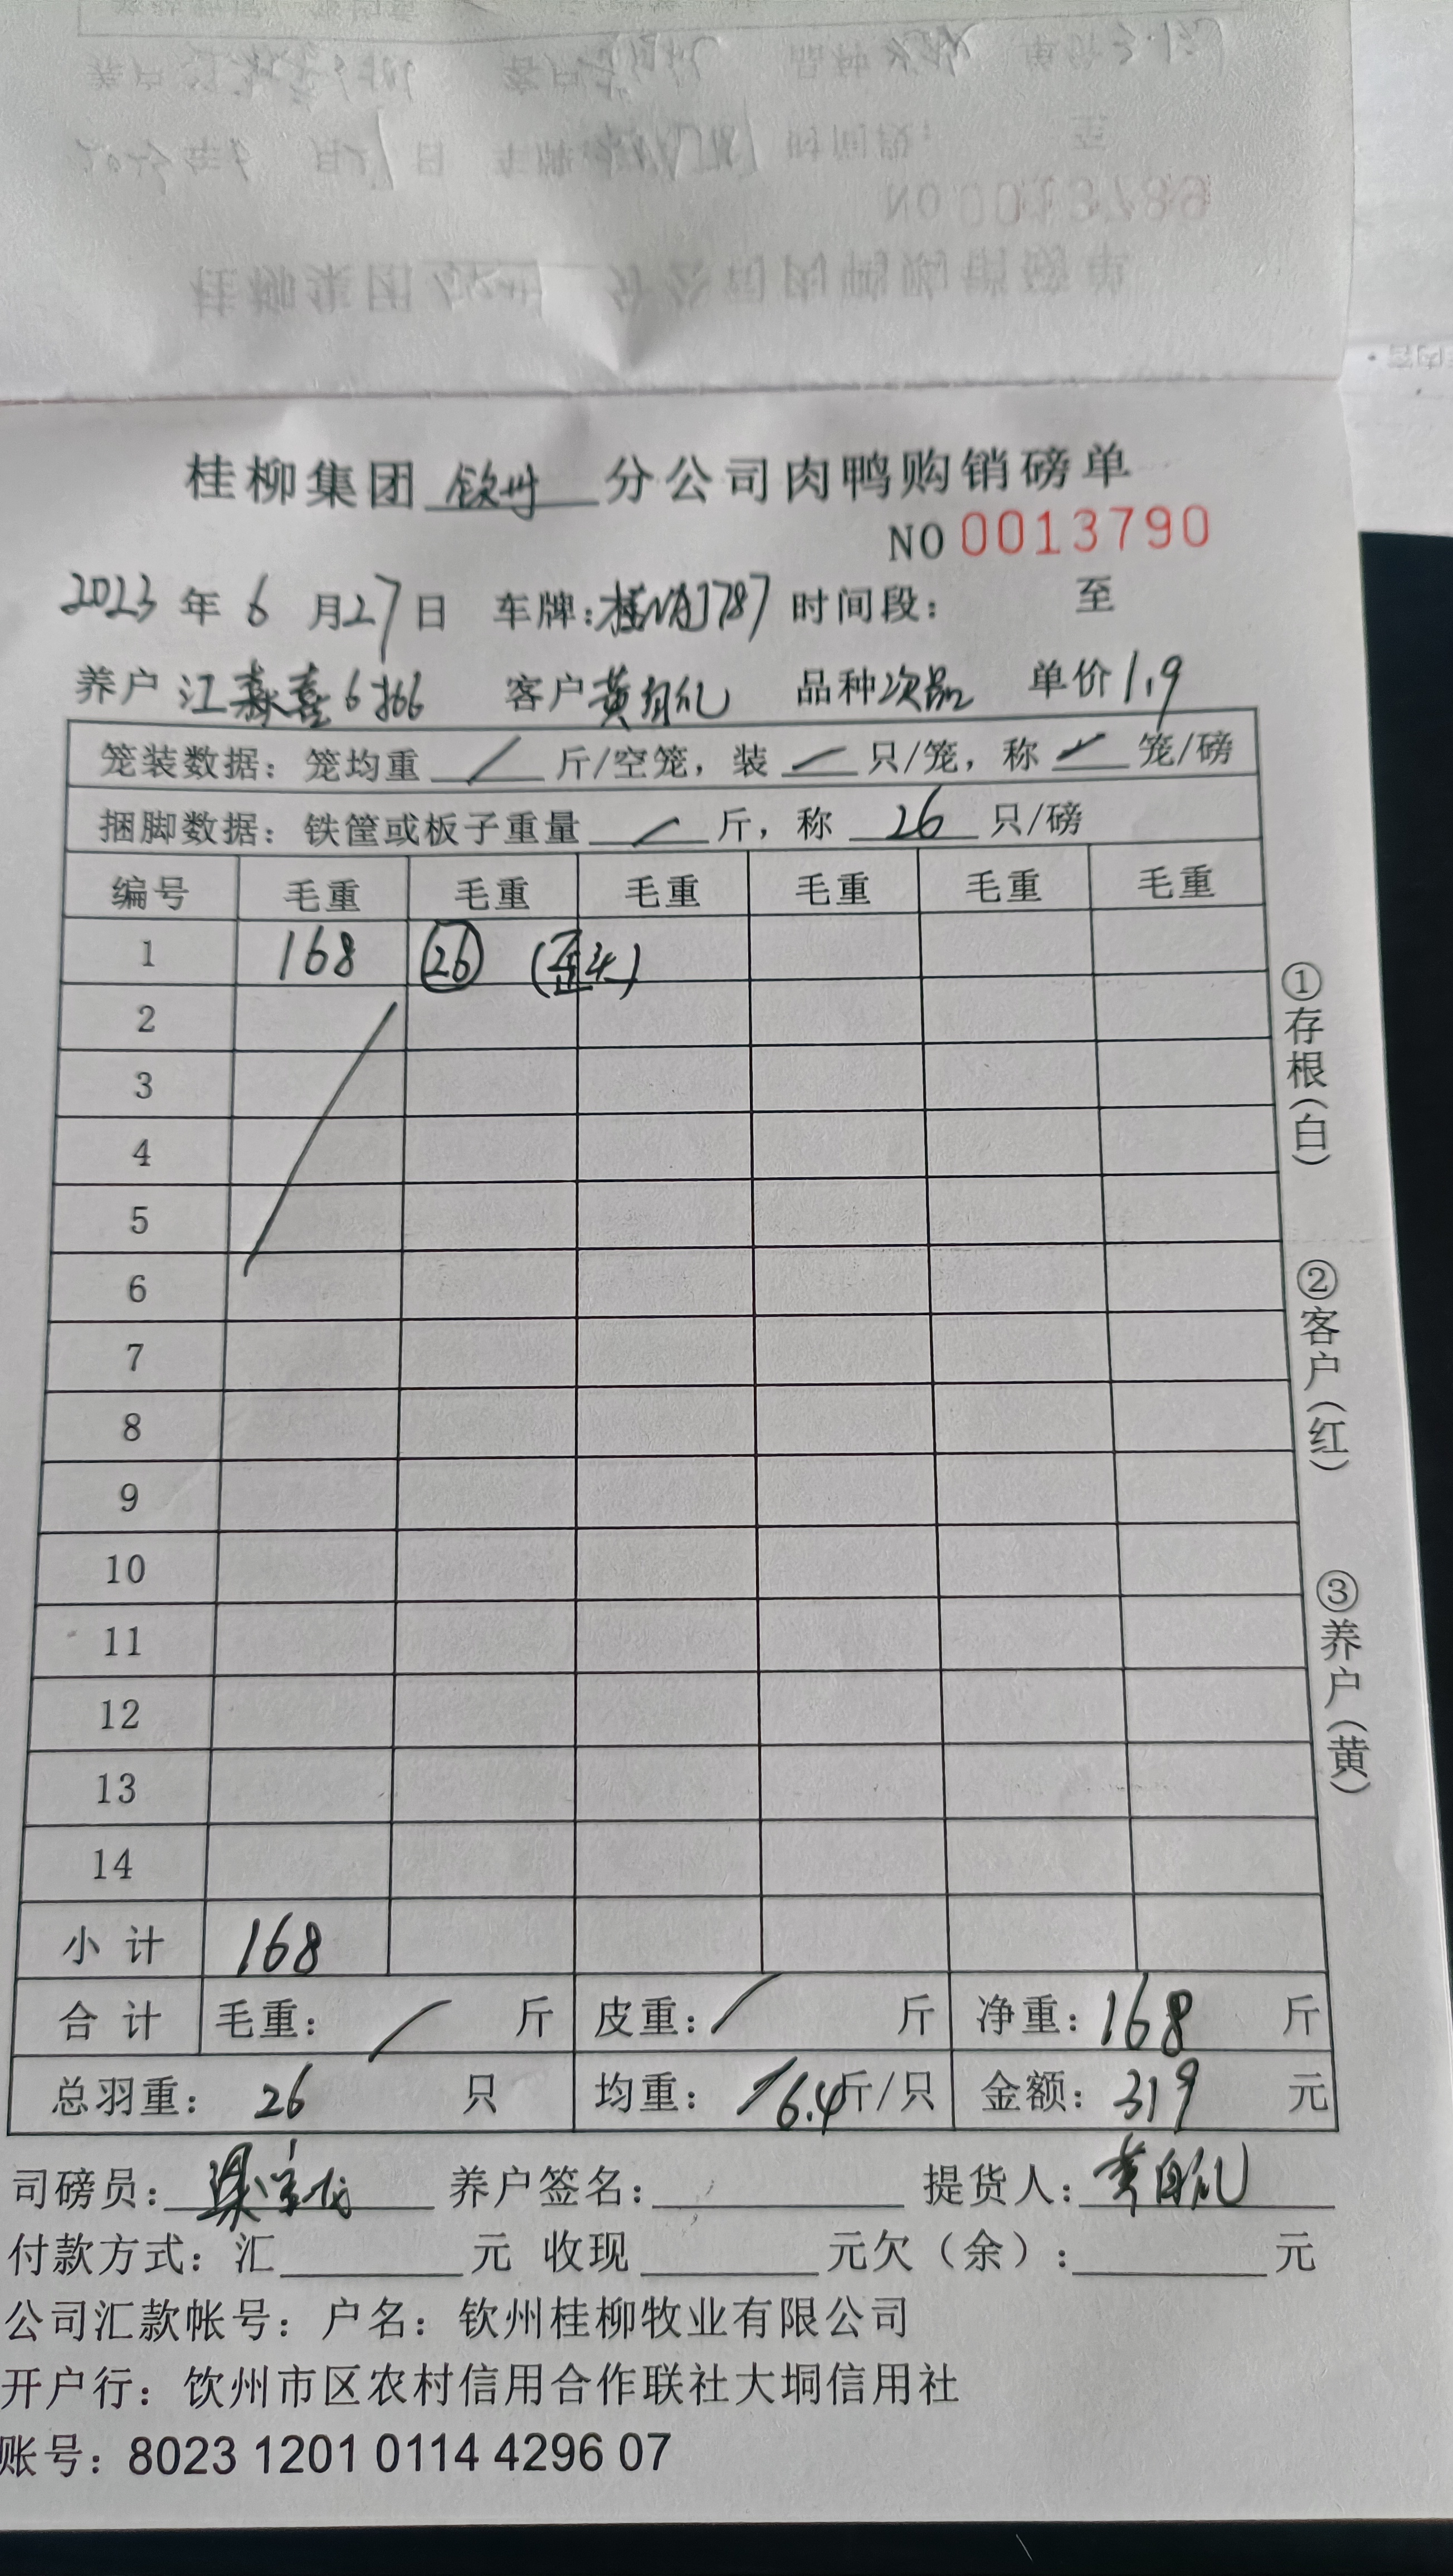 桂柳集团 钦州 分公司肉鸭购销磅单
NO 0013790
2023 年 6 月 27 日 车牌: 时间段: 至
养户 江森喜 客户 黄自礼 品种 次品 单价 1.9
笼装数据: 笼均重 / 斤/空笼, 装 / 只/笼, 称 / 笼/磅
捆脚数据: 铁筐或板子重量 / 斤, 称 26 只/磅
编号 毛重 毛重 毛重 毛重 毛重 毛重
1 168 26 (歪头)
2
3
4
5
6
7
8
9
10
11
12
13
14
小计 168
合计 毛重: / 斤 皮重: / 斤 净重: 168 斤
总羽重: 26 只 均重: 6.4 斤/只 金额: 319 元
司磅员: 养户签名: 提货人: 黄自礼
付款方式: 汇 元 收现 元欠(余): 元
公司汇款帐号: 户名: 钦州桂柳牧业有限公司
开户行: 饮州市区农村信用合作联社大垌信用社
账号: 8023 1201 0114 4296 07
①存根(白)
②客户(红)
③养户(黄)